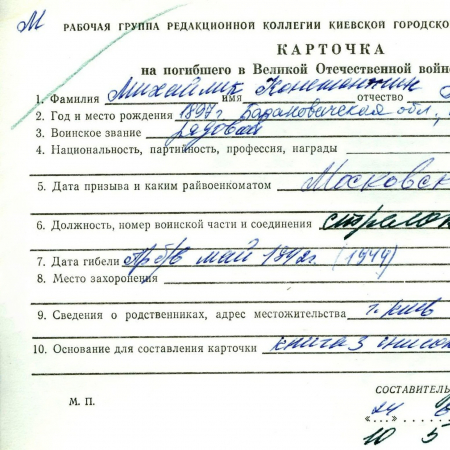 М РАБОЧАЯ ГРУППА РЕДАКЦИОННОЙ КОЛЛЕГИИ КИЕВСКОЙ ГОРОДСКО
КАРТОЧКА
на погибшего в Великой Отечественной войн
1. Фамилия Михайлик имя Константин отчество
2. Год и место рождения 1897г Барановичская обл.,
3. Воинское звание рядовой
4. Национальность, партийность, профессия, награды
5. Дата призыва и каким райвоенкоматом Московск
6. Должность, номер воинской части и соединения стрелок
7. Дата гибели пр б/в май 1942г. (1944)
8. Место захоронения
9. Сведения о родственниках, адрес местожительства г. Киев
10. Основание для составления карточки книга 3 списа
СОСТАВИТЕЛ
М. П.
24
10 5